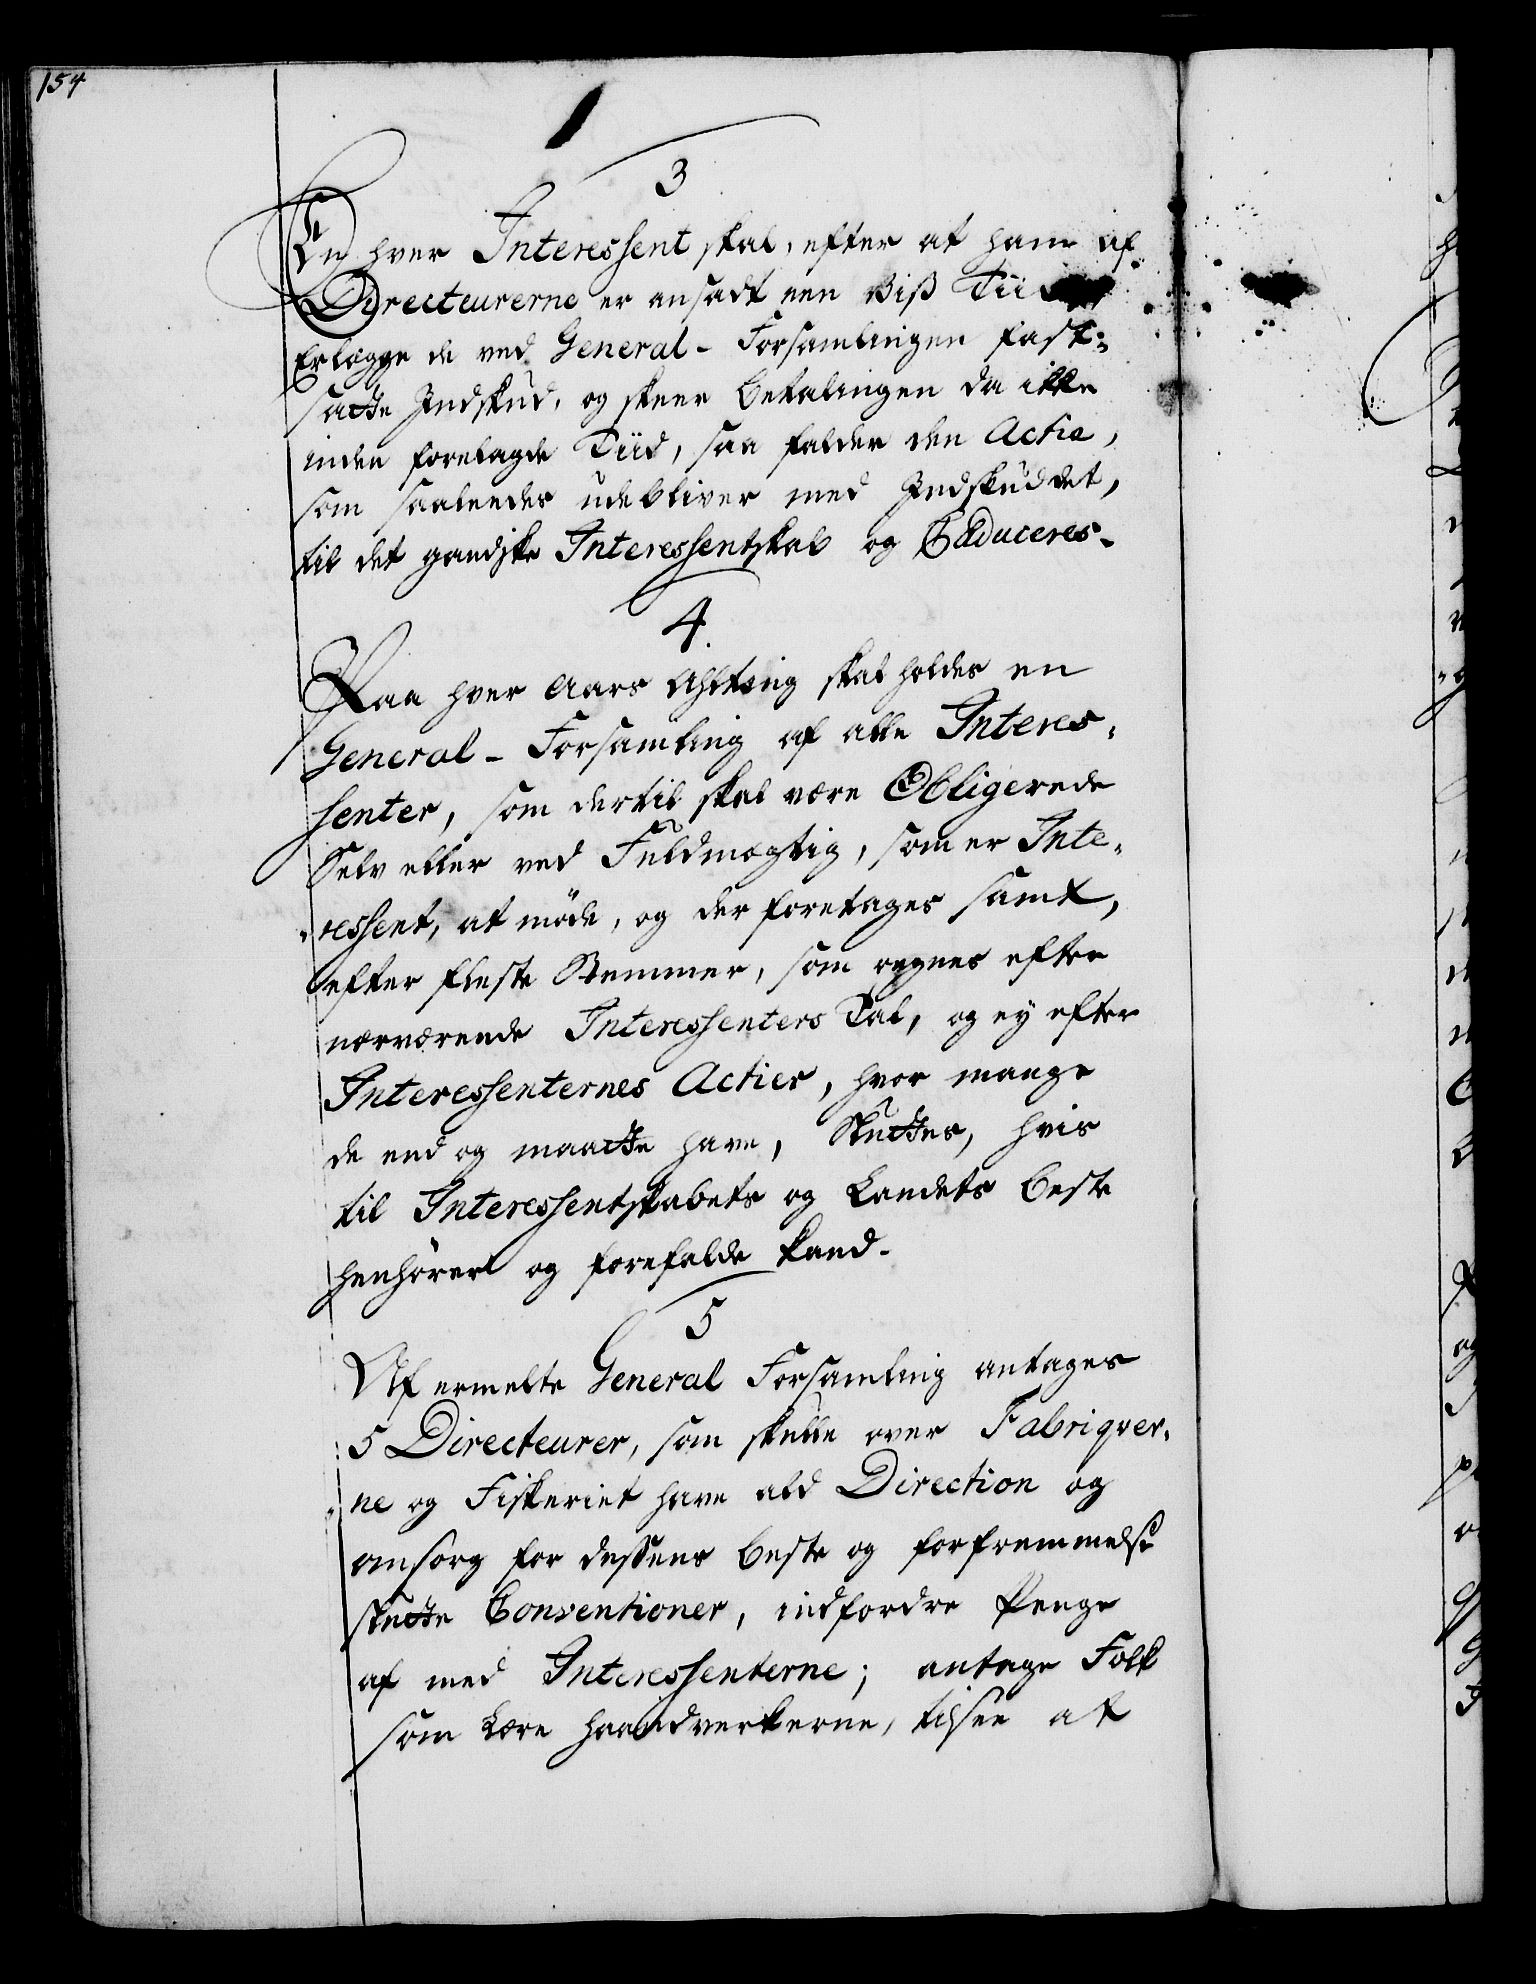 154
3
En hver Interessent skal, efter at ham af
Directeurerne er ansadt een viß Tiid
Erlægge de ved General-Forsamlingen fast-
satte Indskud, og skeer betalingen da ikke
inden forelagde Tiid, saa falder den Actie,
som saaleedes udebliver med Indskuddet,
til det gandske Interessentskab og Caduceres-
4.
Paa hver Aars Alting skal holdes en
General-Forsamling af alle Interes-
senter, som dertil skal være Obligerede
Selv eller ved Fuldmægtig, som er Inte-
ressent, at møde, og der foretages samt,
efter fleste Stemmer, som regnes efter
nærværende Interessenters Tal, og ey efter
Interessenternes Actier, hvor mange
de end og maatte have, Sluttes, hvis
til Interessentskabets og Landets beste
henhører og forefalde kand-
5
Af ermelte General Forsamling antages
5 Directeurer, som skulle over Fabriqver-
ne og Fiskeriet have ald Direction og
omsorg for dessens beste og forfremmelse
slutte Conventioner, indfordre Penge
af med Interessenterne; antage Folk
som lære haandverkerne, tilsee at